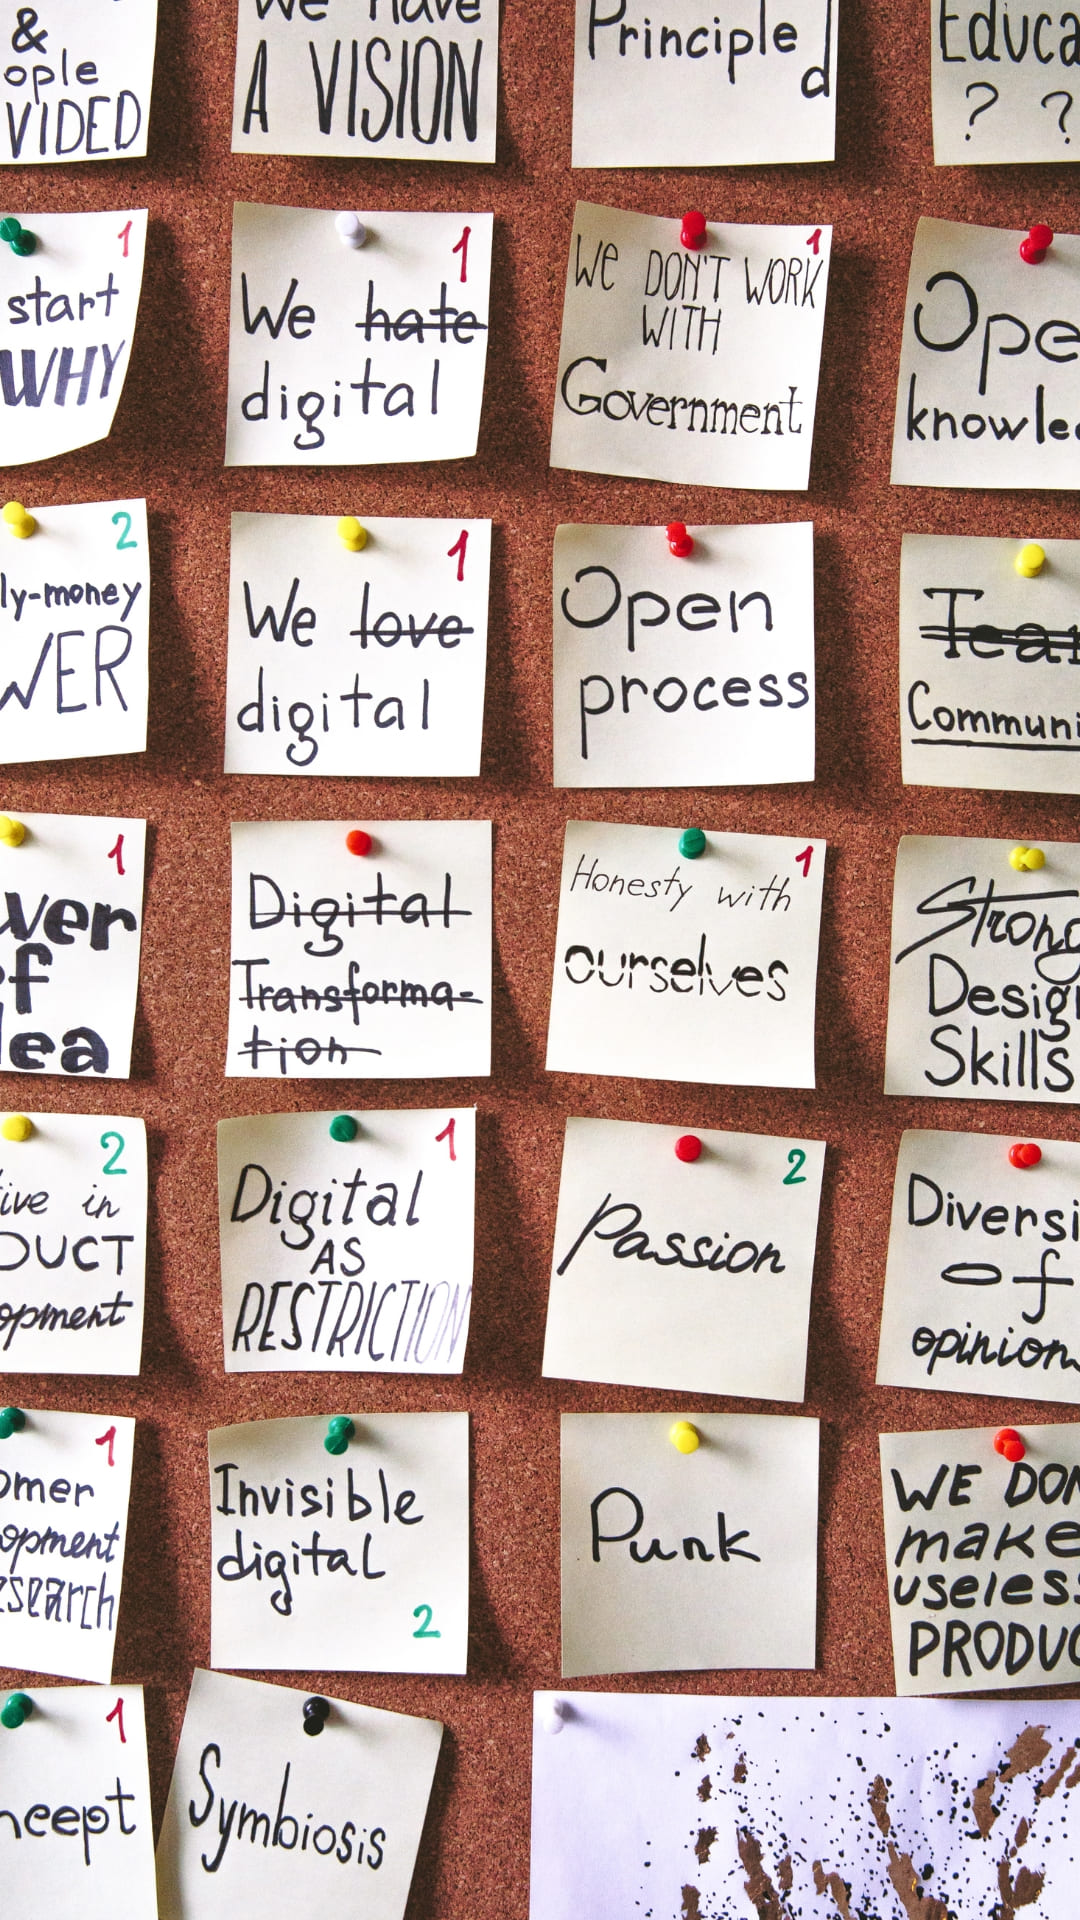 &
ople
VIDED
We have
A VISION
Principle
d
Educa
? ?
1
start
WHY
1
We hate
digital
1
We DON'T WORK
WITH
Government
Ope
knowle
2
ly-money
WER
1
We love
digital
Open
process
Tea
Communi
1
wer
of
dea
Digital
Transforma-
tion
1
Honesty with
ourselves
Strong
Design
Skills
2
ive in
DUCT
opment
1
Digital
AS
RESTRICTION
2
Passion
Diversi
of
opinion
1
omer
opment
esearch
Invisible
digital
2
Punk
WE DON
make
useless
PRODUC
1
ncept
Symbiosis